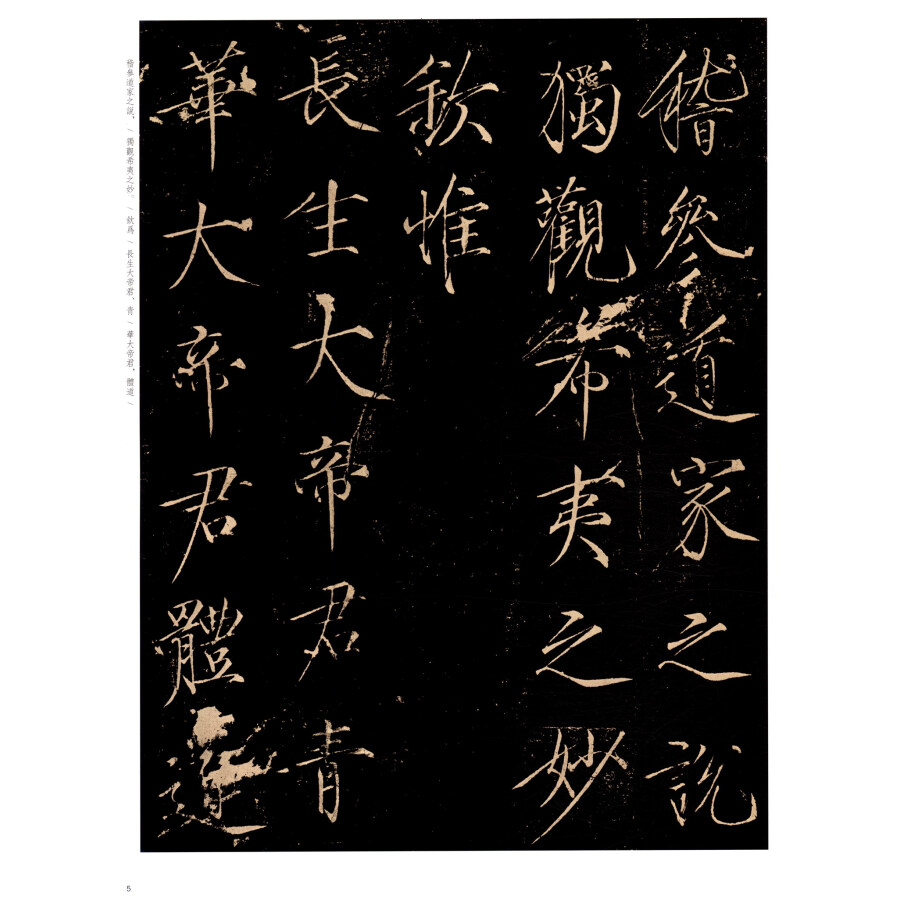 稽參道家之說
獨觀希夷之妙
欽惟
長生大帝君青
華大帝君體道
稽參道家之説，\ 獨觀希夷之妙。\ 欽爲 \ 長生大帝君、青 \ 華大帝君，體道 \
5